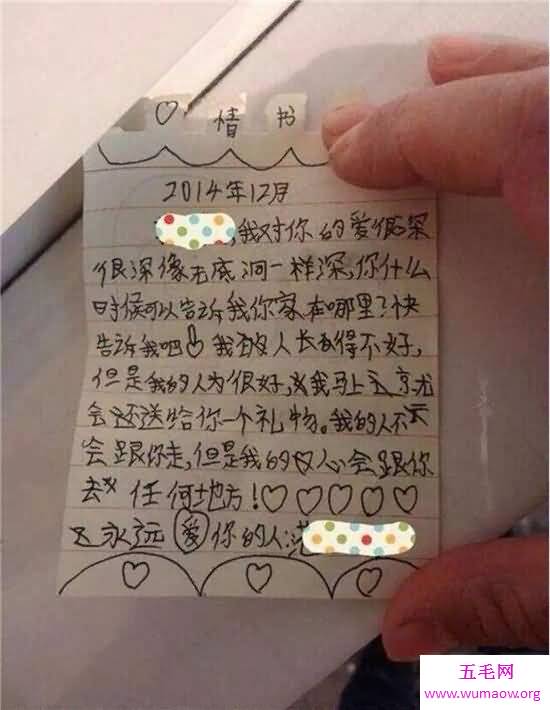 ♡ 情 书
2014年12月
,我对你的爱很深
很深像无底洞一样深,你什么
时候可以告诉我你家在哪里?快
告诉我吧 我的人长得不好,
但是我的人为很好,我马上
会送给你一个礼物。我的人不
会跟你走,但是我的心会跟你
去 任何地方!♡♡♡♡♡
永远 爱 你的人:范
♡ ♡ ♡
五毛网
www.wumaow.org